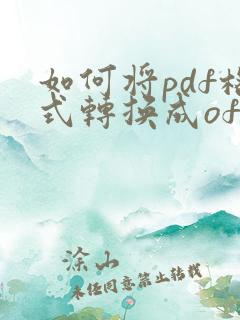 如何将pdf格
式轉换成of
涂山
未经同意禁止转载